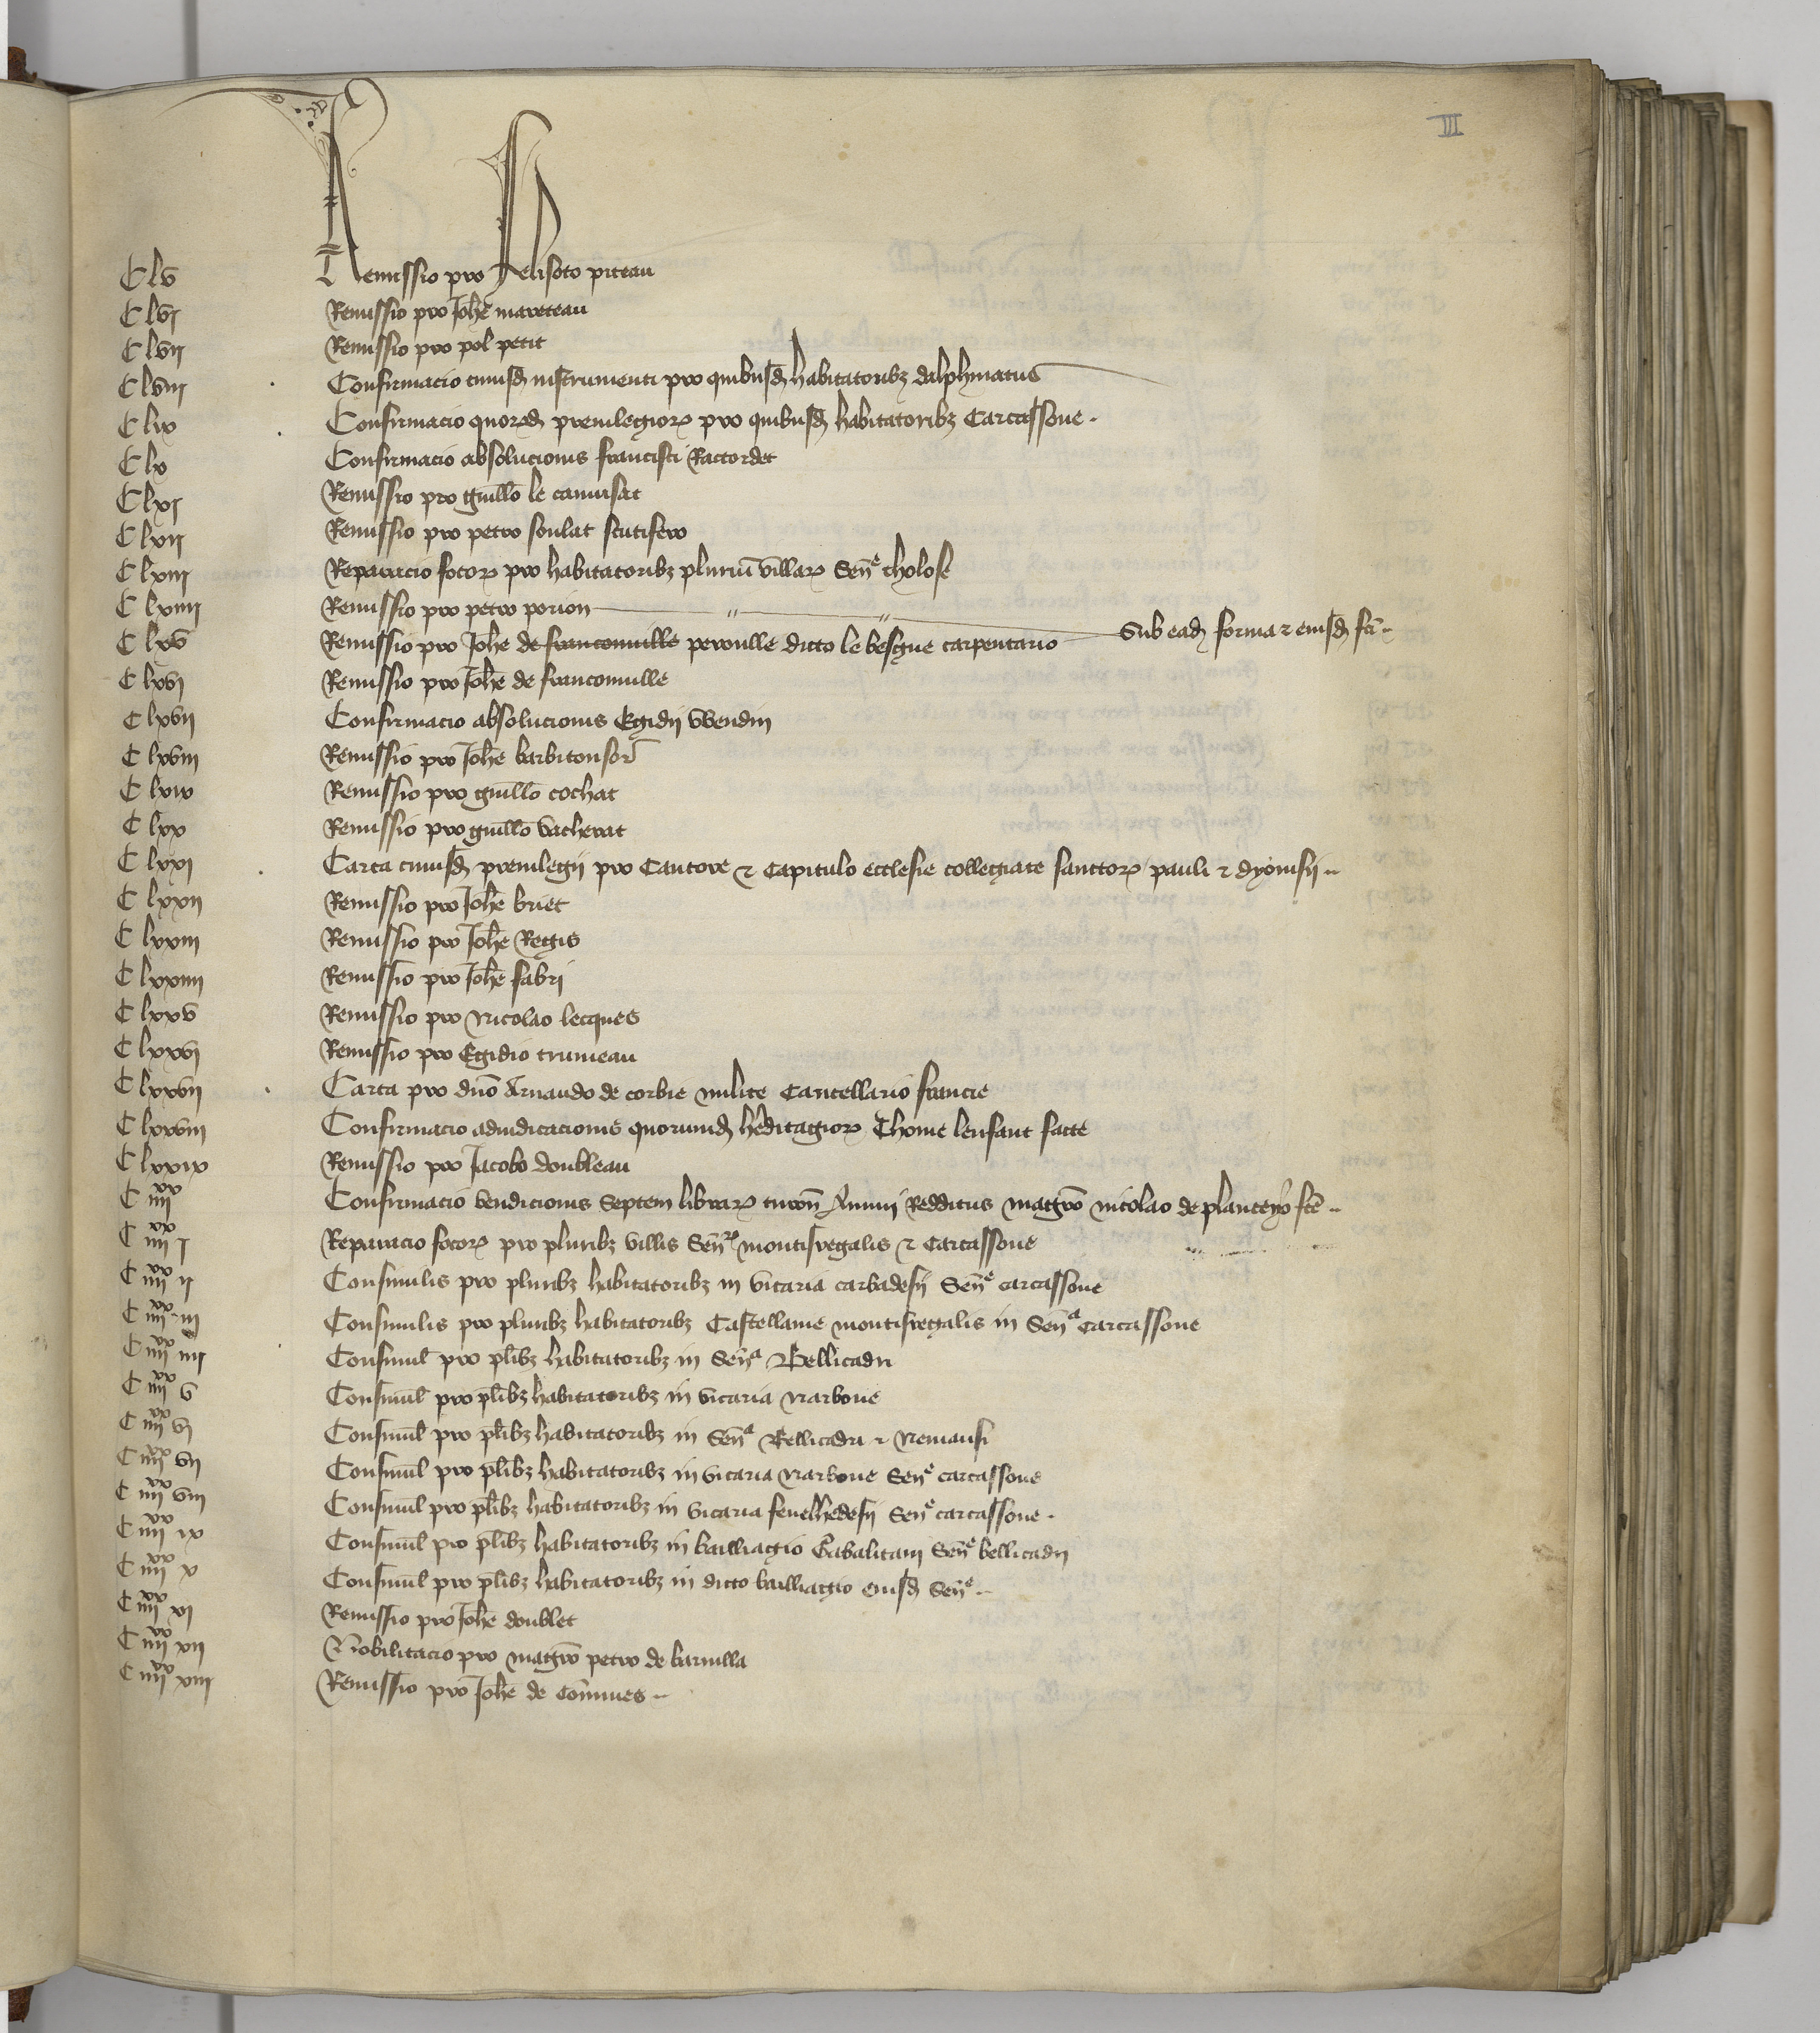 III
C lv Remissio pro Pelisoto piteau
C lvj Remissio pro Johe mareteau
C lvij Remissio pro pol petit
C lviij Confirmacio cuiusd instrumenti pro quibusd habitatoribz dalphinatus
C lix Confirmacio quorumd previlegior pro quibusd habitatoribz Carcassone
C lx Confirmacio absolucionis francisci Ractordet
C lxj Remissio pro guillo le camusat
C lxij Remissio pro petro soulat scutifero
C lxiij Reparacio focor pro habitatoribz pluriu villar Sen^e tholose
C lxiiij Remissio pro petro porion
C lxv Remissio pro Johe de franconville peroulle dicto le besgue carpentario Sub ead forma et eiusd fci
C lxvj Remissio pro Johe de franconville
C lxvij Confirmacio absolucionis Egidij Wendin
C lxviij Remissio pro Johe barbitonsor
C lxix Remissio pro guillo cochat
C lxx Remissio pro guillo vacherat
C lxxj Carta cuiusd previlegij pro Cantore et Capitulo ecclesie collegiate sanctor pauli et dyonisij
C lxxij Remissio pro Johe briet
C lxxiij Remissio pro Johe Regis
C lxxiiij Remissio pro Johe fabri
C lxxv Remissio pro Nicolao lecques
C lxxvj Remissio pro Egidio trumeau
C lxxvij Carta pro dno Arnaudo de corbie milite Cancellario francie
C lxxviij Confirmacio adiudicacionis quorumd hereditagior Thome lenfant facte
C lxxix Remissio pro Jacobo doubleau
C iiij^xx Confirmacio vendicionis Septem librar turon Annui Redditus magro nicolao de planceyo fce
C iiij^xx j Reparacio focor pro pluribz villis Sen montisregalis et Carcassone
C iiij^xx ij Consimilis pro pluribz habitatoribz in vicaria carbadesij Sen^e carcassone
C iiij^xx iij Consimilis pro pluribz habitatoribz Castellanie montisregalis in Sen^a Carcassone
C iiij^xx iiij Consimil pro plibz habitatoribz in Sen^a Bellicadri
C iiij^xx v Consimil pro plibz habitatoribz in vicaria Narbone
C iiij^xx vj Consimil pro plibz habitatoribz in Sen^a Bellicadri et Nemausi
C iiij^xx vij Consimil pro plibz habitatoribz in vicaria Narbone Sen^e carcassone
C iiij^xx viij Consimil pro plibz habitatoribz in vicaria fenolhedesij Sen^e carcassone
C iiij^xx ix Consimil pro plibz habitatoribz in bailliagio Gabalitani Sen^e bellicadri
C iiij^xx x Consimil pro plibz habitatoribz in dicto bailliagio eiusd Sen^e
C iiij^xx xj Remissio pro Johe doublet
C iiij^xx xij Nobilitacio pro magro petro de barvilla
C iiij^xx xiij Remissio pro Johe de Commines